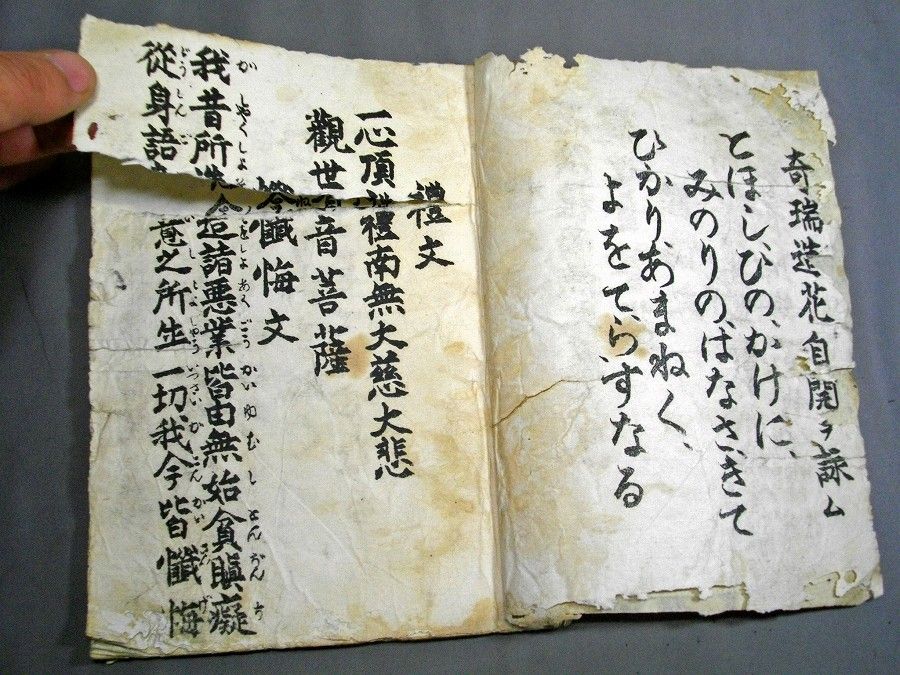 奇瑞造花自開ヲ詠ム
とほしひのかけに、
みのりのはなさきて
ひかりあまねく、
よをてらすなる
禮文
一心頂禮南無大慈大悲
觀世音菩薩
懺悔文
我昔所造諸悪業皆由無始貪瞋癡
從身語意之所生一切我今皆懺悔